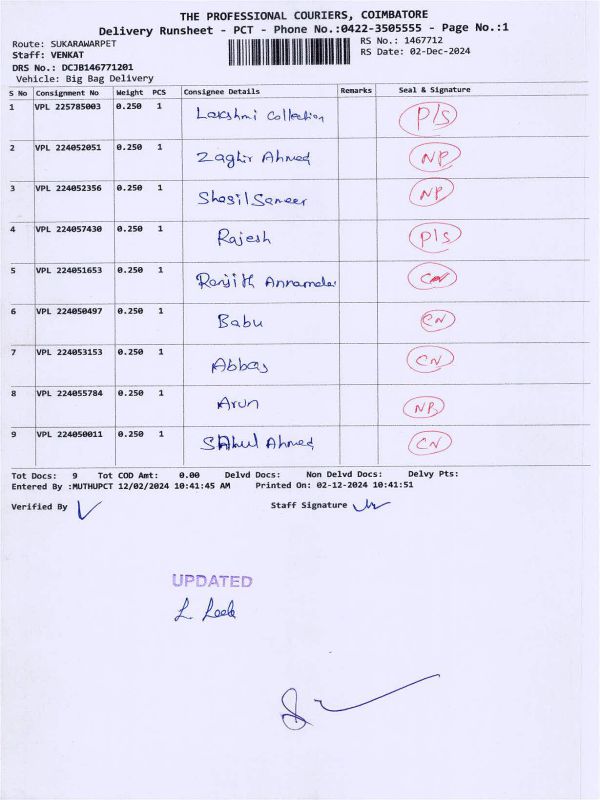 THE PROFESSIONAL COURIERS, COIMBATORE
Delivery Runsheet - PCT - Phone No.:0422-3505555 - Page No.:1
Route: SUKARAWARPET
RS No.: 1467712
Staff: VENKAT
RS Date: 02-Dec-2024
DRS No.: DCJB146771201
Vehicle: Big Bag Delivery
S No Consignment No Weight PCS Consignee Details Remarks Seal & Signature
1 VPL 225785003 0.250 1 Lakshmi Collection P/S
2 VPL 224052051 0.250 1 Zaghir Ahmed NP
3 VPL 224052356 0.250 1 Sameer NP
4 VPL 224057430 0.250 1 Rajesh P/S
5 VPL 224051653 0.250 1 Ranjith Annamalai CN
6 VPL 224050497 0.250 1 Babu CN
7 VPL 224053153 0.250 1 Abbas CN
8 VPL 224055784 0.250 1 Arun NP
9 VPL 224050011 0.250 1 SAhul Ahmed CN
Tot Docs: 9 Tot COD Amt: 0.00 Delvd Docs: Non Delvd Docs: Delvy Pts:
Entered By :MUTHUPCT 12/02/2024 10:41:45 AM Printed On: 02-12-2024 10:41:51
Verified By
Staff Signature
UPDATED